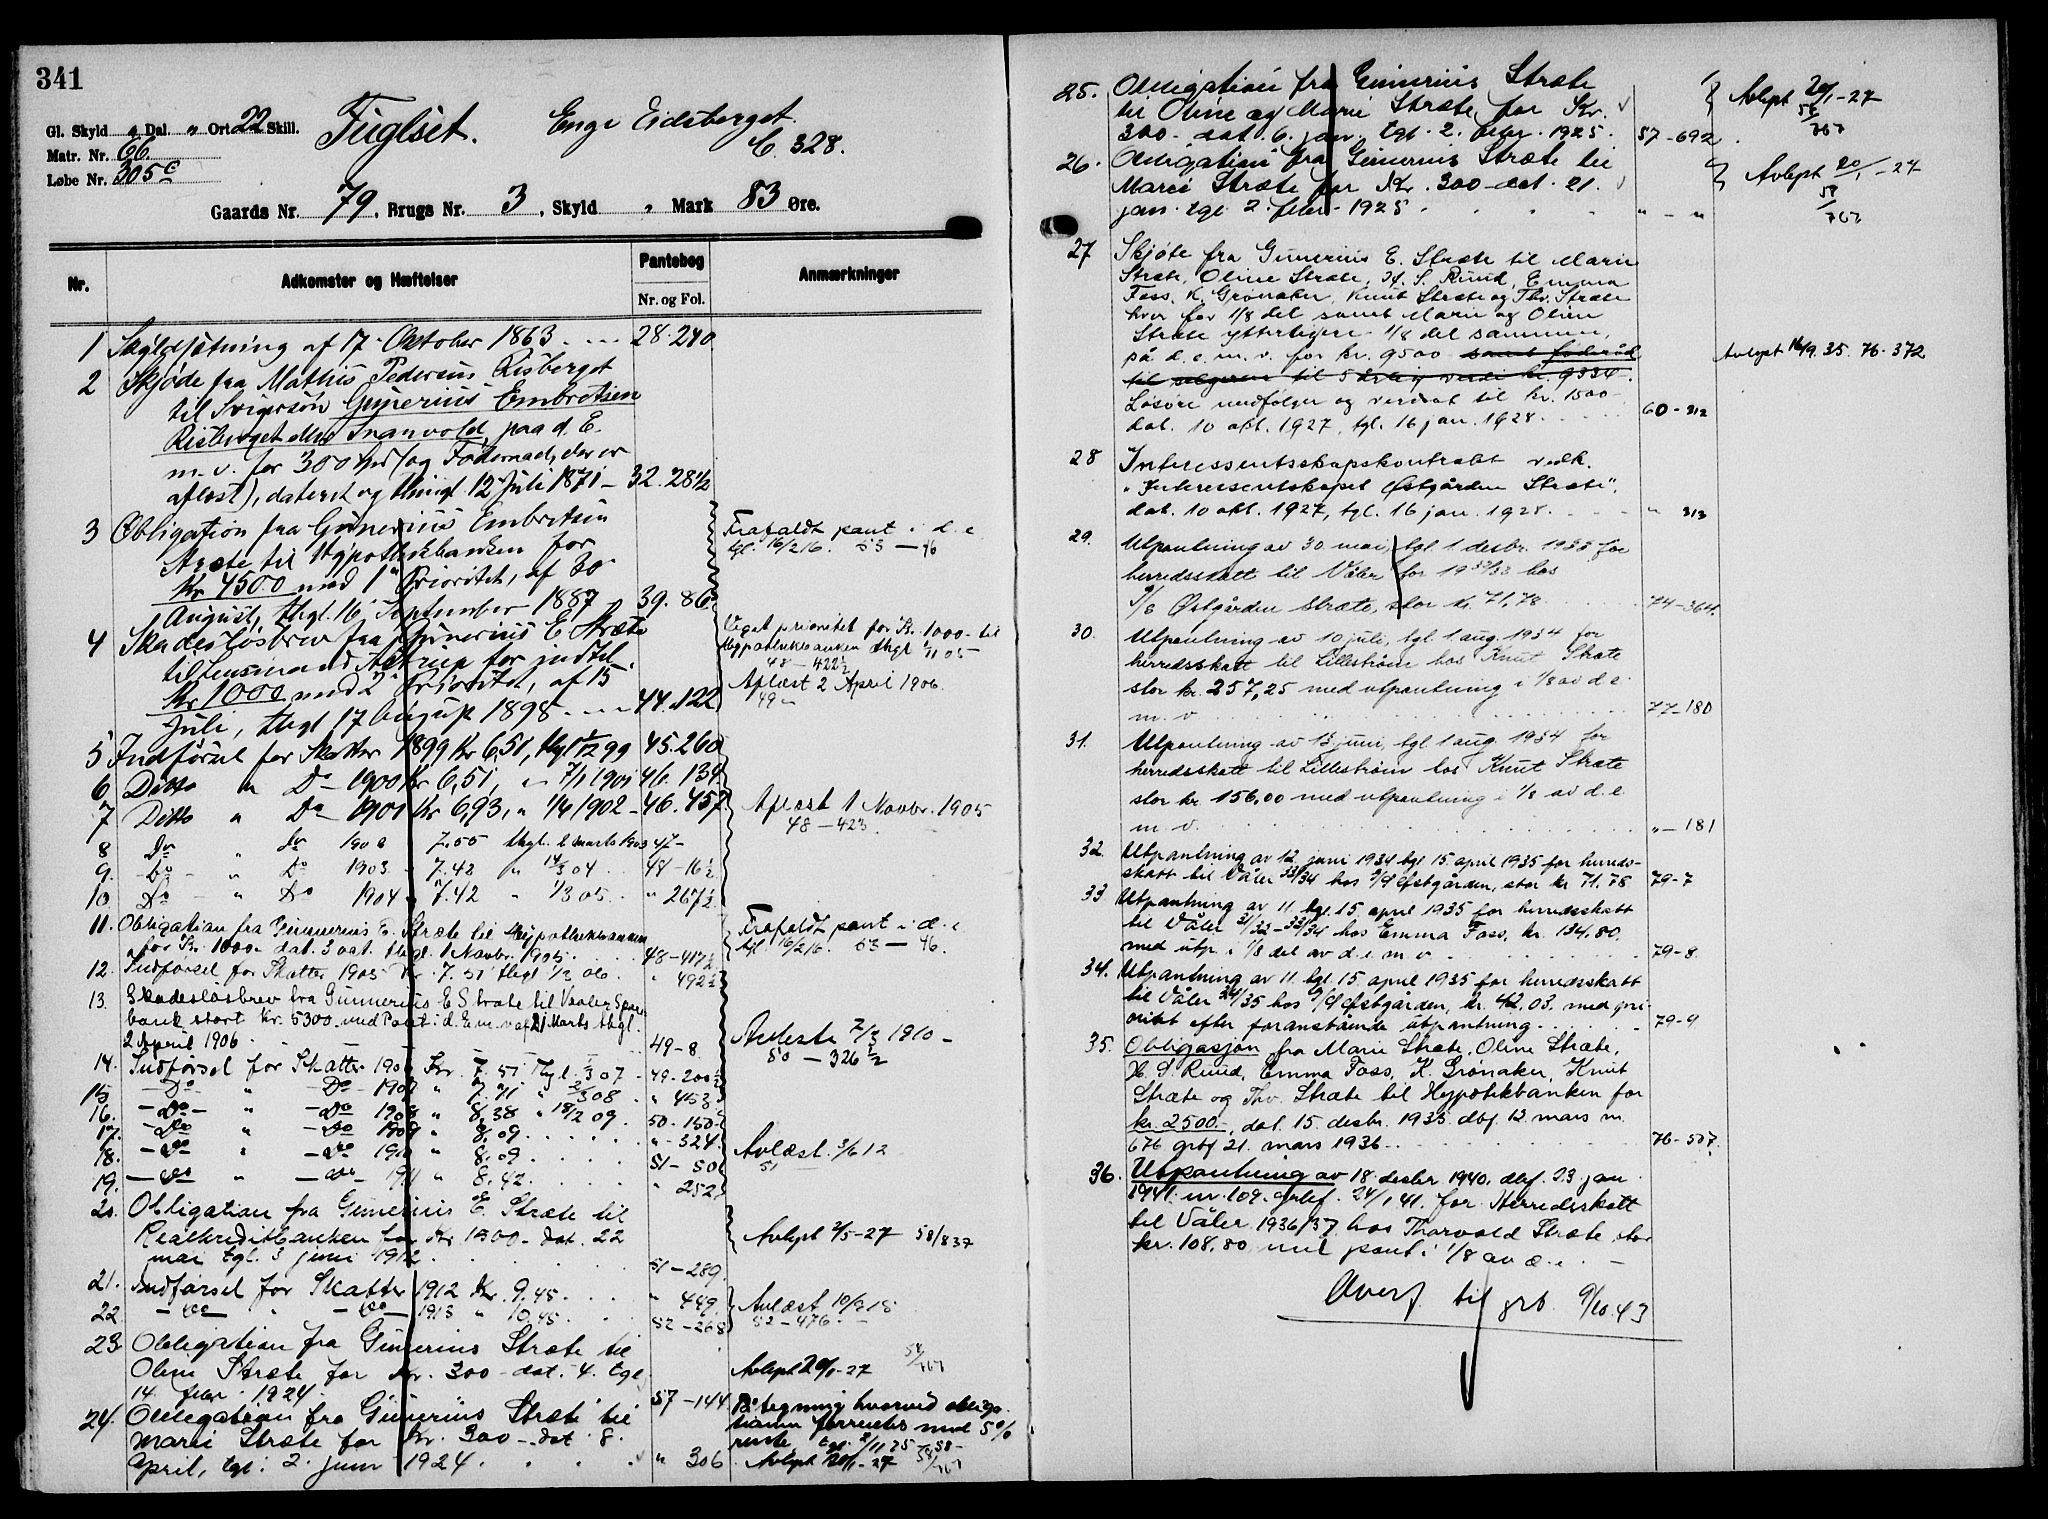 341
Gl. Skyld " Dal. " Ort 22 Skill. Fuglset. Enge Eidsberget
Matr. Nr. 66. C. 328.
Løbe Nr. 305c
Gaards Nr. 79, Brugs Nr. 3, Skyld " Mark 83 Øre.
Nr. Adkomster og Hæftelser Pantebog Anmærkninger
Nr. og Fol.
1 Skyldsætning af 17. Oktober 1863 28.240
2 Skjøde fra Mathis Pedersen Risberget
til Svigersøn Gunerius Embretsen
Risberget eller Svanvold, paa d. E.
m. v. for 300 Spd (og Føderaad, der er
afløst), dateret og thingl. 12 Juli 1871 - 32.281½
3 Obligation fra Gunerius Embretsen Frafaldt pant i d. e.
Stræte til Hypothekbanken for tgl. 16/2 16. 53 - 46
Kr 4500 med 1ste Prioritet, af 30
August, thgl. 16 September 1887 39.86
4 Skadesløsbrev fra Gunerius E Stræte Veget prioritet for Kr. 1000 - til
til Lensmand Astrup for indtil Hypothekbanken thgl 1/11 05
48 - 422½
Kr 1000 med 2 Prioritet, af 15 Aflæst 2 April 1906.
Juli, thgl 17 August 1898 44.122 49 "
5 Indførsel for Skatter 1899 Kr 6,51, thgl 1/12 99 45.260
6 Ditto " Do 1900 Kr 6,51, " 7/1 1901 46.134
7 Ditto " Do 1901 Kr 6,93, " 1/4 1902 - 46.457 Aflæst 1 Novbr. 1905
8 Do " do 1902 7.55 thgl. 2 marts 1903 47- 48 - 423
9. Do " Do 1903 7.42 " 14/3 04 48 - 16½
10 Do " Do 1904 7.42 " 1/3 05 " 267½
11. Obligation fra Gunnerius E. Stræte til Hypothekbanken Frafaldt pant i d. e
for Kr. 1000 - dat. 3 oct. thgl. 1 Novbr. 1905 48 - 417½ tgl. 16/2 16. 53 - 46.
12. Indførsel for Skatter 1905 Kr. 7.51 thgl 1/3 06 " 492½
13. Skadesløsbrev fra Gunnerius E Stræte til Vaaler Spare
bank stort Kr. 5300 med Pant i d. E. m. v. af 21 Marts thgl. Avlæste 7/3 1910 -
2 April 1906 49 - 8 50 - 326½
14. Indførsel for Skatter 1906 Kr. 7.51 Thgl. 1/3 07 - 49 - 200½
15 - Do - " - Do - 1907 " 7.71 " 2/3 08 " 453
16. - Do - " - Do 1908 " 8,38 " 18/2 09. 50 - 150
17. - Do " - Do 1909 " 8.09 " - 324
18. - Do " - Do 1910 " 8.09 51 - 50 Avlæst 3/6 12
19. - do " - do 1911 " 8.42 " 252 51
20. Obligation fra Gunerius E. Stræte til
Realkreditbanken for Kr 1300 - dat. 22 Avlyst 2/5 - 27 58/837
mai tgl. 3 juni 1912. 51 - 289
21. Indførsel for Skatter 1912 Kr. 9.45 " 449 Avlæst 10/3 15
22 - do - " - do - 1913 " 10.45 52 - 268 52 - 476.
23 Obligation fra Gunerius Stræte til
Oline Stræte for Kr. 300 - dat. 4. tgl Avlyst 20/1 - 27 58/767
14. febr. 1924. 57 - 144
24. Obligation fra Gunerius Stræte til Påtegning hvorved obliga-
Marie Stræte for Kr. 300 - dat. 8. tionen forrentes med 5 %
rente tgl. 2/11 25 - 58 -
April, tgl. 2. juni 1924. " 306. Avlyst 20/1 - 27 58/767
25. Obligation fra Gunerius Stræte
til Oline og Marie Stræte for Kr. Avlyst 20/1 - 27
300 - dat. 6. jan. tgl. 2. febr. 1925. 57 - 692. 58/767
26. Obligation fra Gunerius Stræte til
Marie Stræte for Kr. 300 - dat. 21. Avlyst 20/1 - 27
jan. tgl. 2. febr. 1925 " - " 58/767
27 Skjøte fra Gunerius E. Stræte til Marie
Stræte, Oline Stræte, H. S. Ruud, Emma
Foss, K. Grønaker, Knut Stræte og Thv. Stræte
hver for 1/8 del samt Marie og Oline
Stræte ytterligere 1/8 del sammen,
på d. e. m. v. for kr. 9500 samt føderåd Avlyst 16/9. 35. 76 - 372
til selgeren til 5 årlig verdi kr. 9334.
Løsøre medfølger og verdsat til kr. 1500 -
dat. 10 okt. 1927, tgl. 16 jan. 1928. 60 - 312
28 Interessentskapskontrakt vedk.
"Interessentskapet Østgården Stræte",
dat. 10 okt. 1927, tgl. 16 jan. 1928. " 313
29. Utpantning av 30 mai, tgl 1 desbr. 1933 for
herredsskatt til Våler for 1932/33 hos
9/8 Østgården Stræte, stor kr. 71,78 74 - 364.
30. Utpantning av 10 juli, tgl 1 aug. 1934 for
herredsskatt til Lillestrøm hos Knut Stræte
stor kr. 257,25 med utpantning i 1/8 av d. e.
m. v. 77 - 180
31. Utpantning av 13 juni, tgl 1 aug. 1934 for
herredsskatt til Lillestrøm hos Knut Stræte
stor kr 156,00 med utpantning i 1/8 av d. e.
m. v. " - 181
32. Utpantning av 12 juni 1934 tgl 15 april 1935 for herreds-
skatt til Våler 33/34 hos 9/9 Østgården, stor kr 71.78 79 - 7
33 Utpantning av 11. tgl. 15. april 1935 for herredsskatt
til Våler 31/32 - 33/34 hos Emma Foss, kr. 134.80.
med utp. i 1/8 del av d. e. m. v. 79 - 8.
34. Utpantning av 11. tgl. 15. april 1935 for herredsskatt
til Våler 34/35 hos 9/9 Østgården, kr. 42.03. med pri-
oritet efter foranstående utpantning 79 - 9
35. Obligasjon fra Marie Stræte, Oline Stræte,
H. S. Ruud, Emma Foss, K. Grønaker, Knut
Stræte og Thv. Stræte til Hypotekbanken for
kr. 2500 -, dat. 15. desbr. 1935 dbf. 12 mars nr.
676 grbf 21. mars 1936 76 - 507.
36. Utpantning av 18 desbr 1940. dbf. 23 jan
1941. nr. 109. grbf. 24/1 41. for Herredsskatt
til Våler 1936/37 hos Thorvald Stræte stor
kr. 108.80 med pant i 1/8 av d. e.
Overf. til grb. 9/10.43